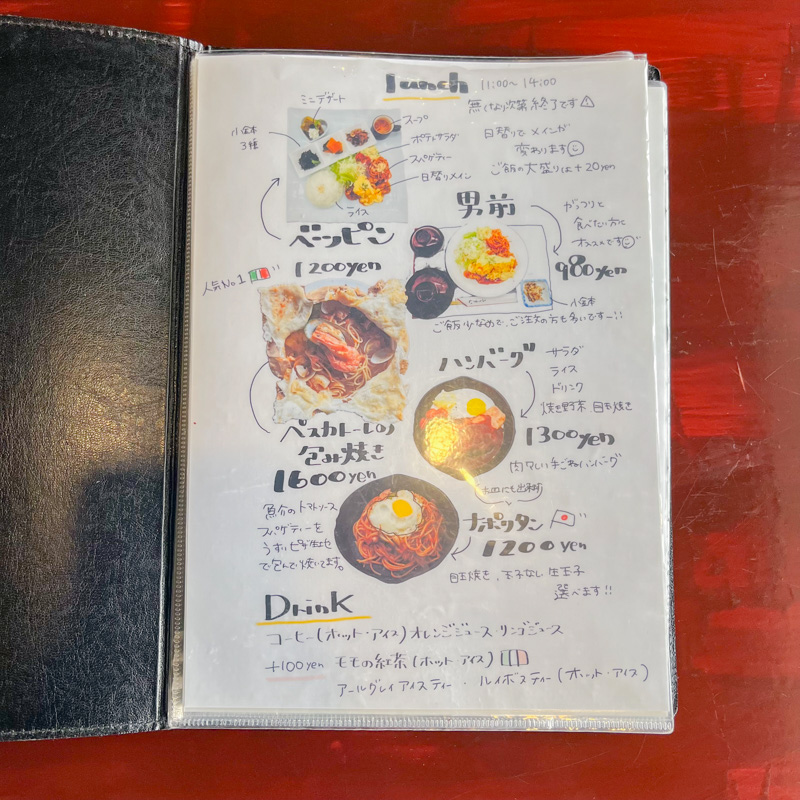 lunch 11:00〜14:00
無くなり次第終了です⚠
日替りでメインが
変わります☺
ご飯の大盛りは+20yen
ミニデザート
スープ
ポテトサラダ
スパゲティー
日替りメイン
ライス
小鉢
3種
ベーッピン
1200yen
男前
がっつりと
食べたい方に
オススメです☺
980yen
小鉢
ご飯少なめで、ご注文の方も多いですー!!
人気No1
ペスカトーレの
包み焼き
1600yen
魚介のトマトソース
スパゲティーを
うすいピザ生地
で包んで焼いてます。
ハンバーグ
サラダ
ライス
ドリンク
焼き野菜、目玉焼き
1300yen
肉々しい手ごねハンバーグ
ナポリタン
1200yen
目玉焼き、玉子なし、生玉子
選べます!!
Drink
コーヒー(ホット・アイス)オレンジジュース・リンゴジュース
+100yen ももの紅茶(ホット・アイス)
アールグレイアイスティー・ルイボスティー(ホット・アイス)